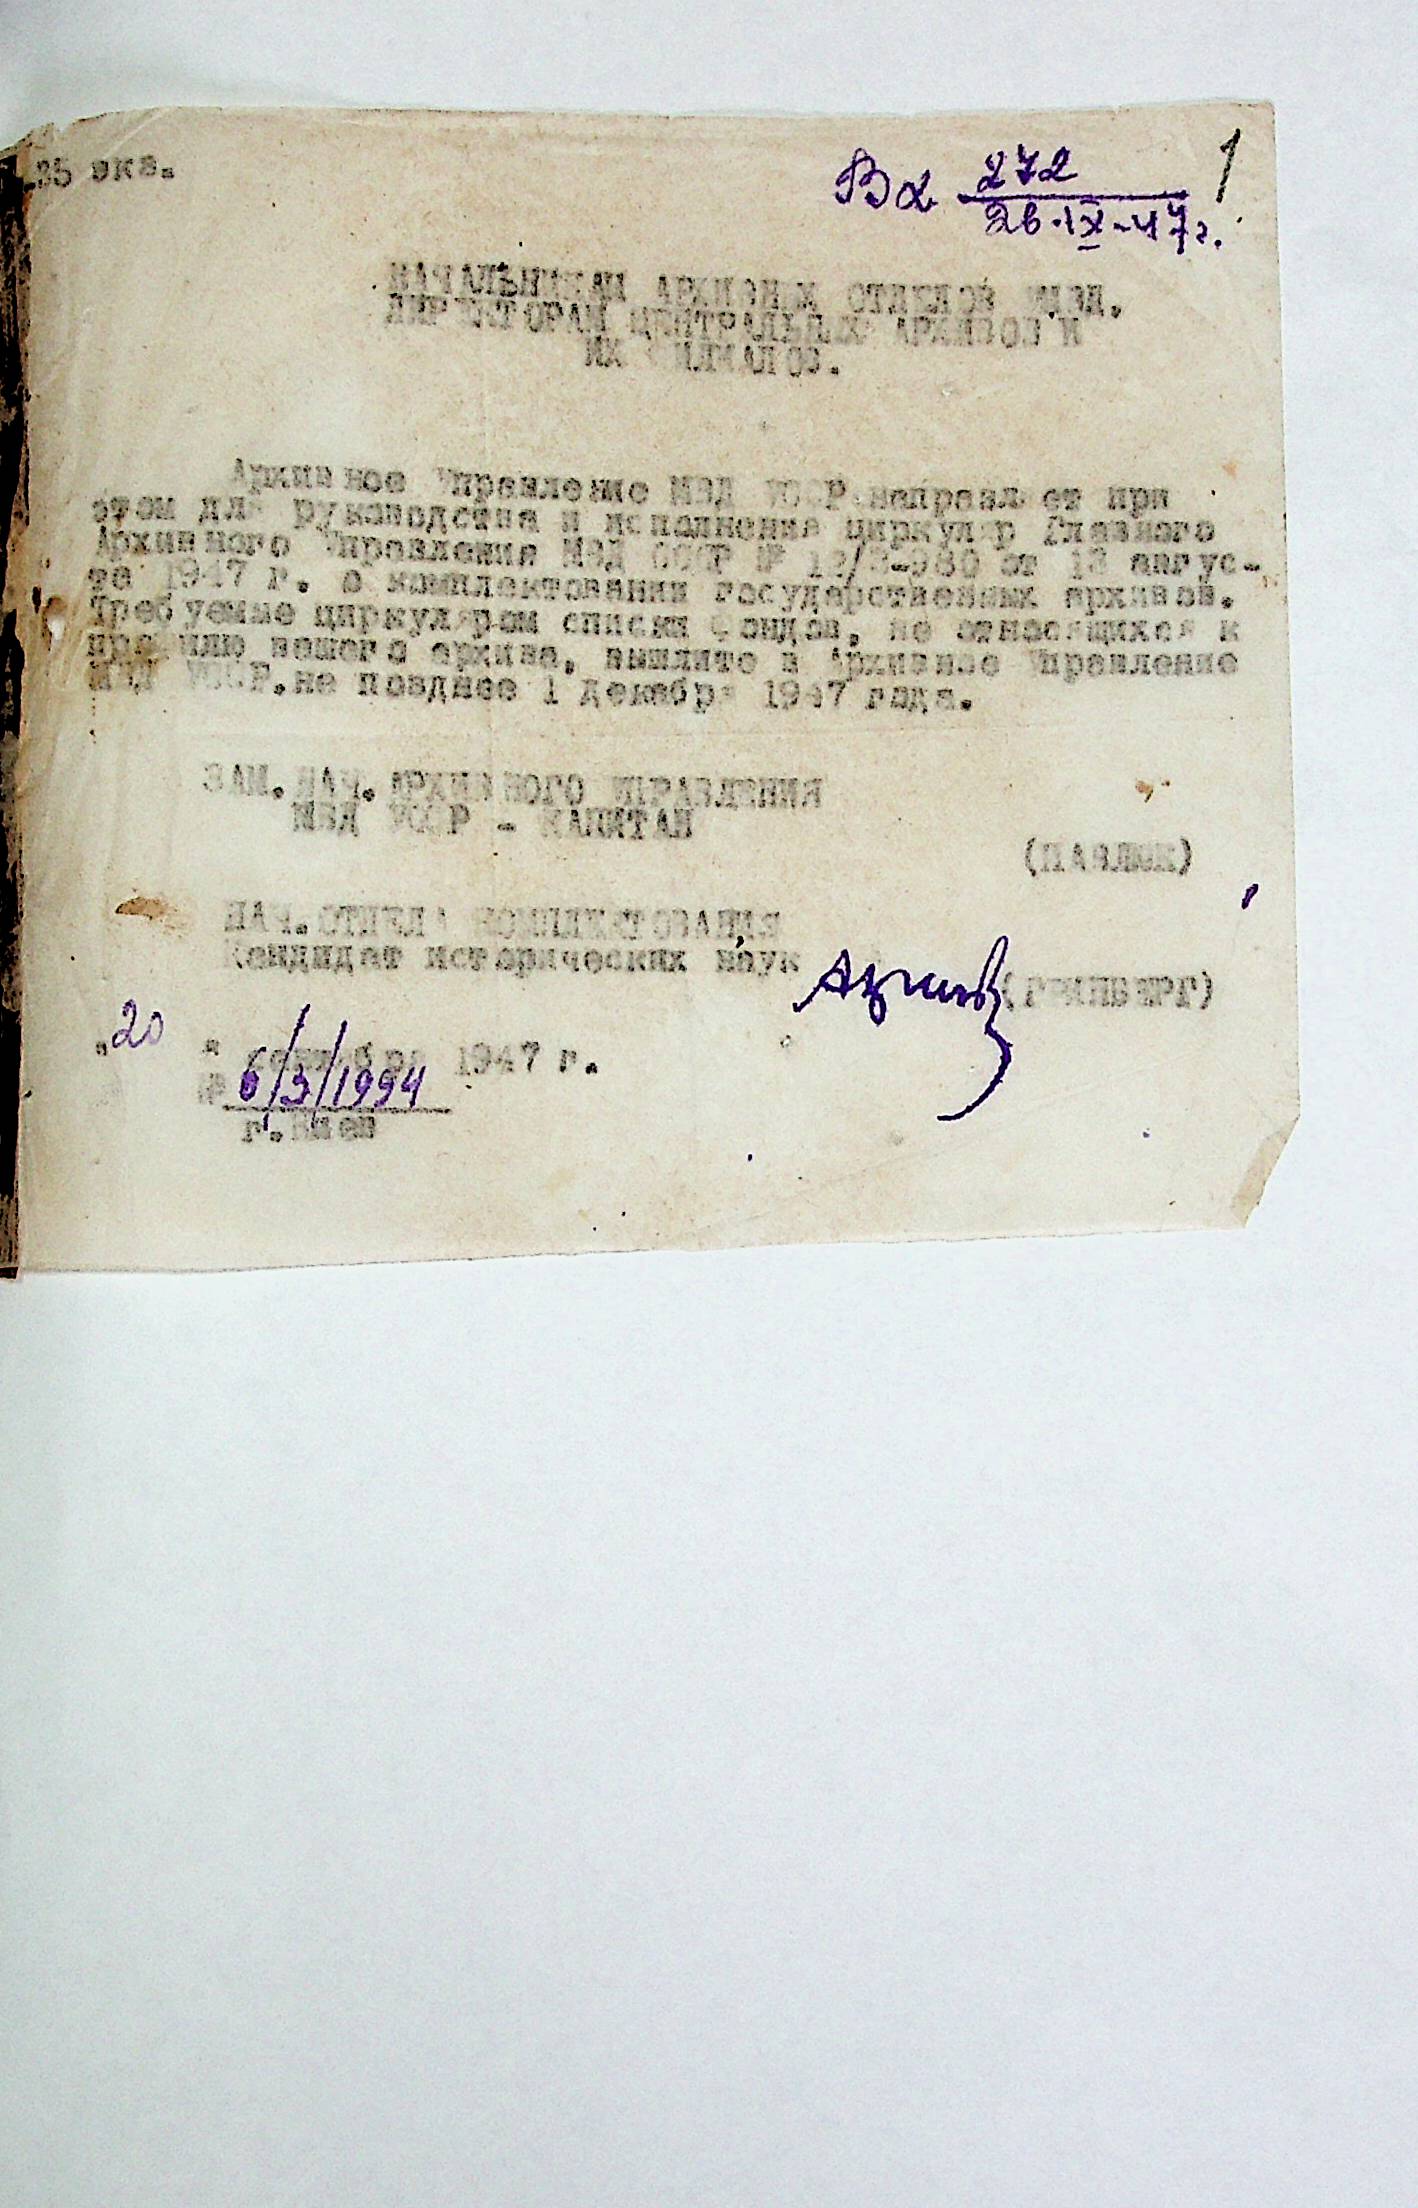 35 экз.
Вх 272 1
26·IX-47г.
НАЧАЛЬНИКАМ АРХИВНЫХ ОТДЕЛОВ УМВД,
ДИРЕКТОРАМ ЦЕНТРАЛЬНЫХ АРХИВОВ И
ИХ ФИЛИАЛОВ.
Архивное Управление МВД УССР направляет при
этом для руководства и исполнения циркуляр Главного
Архивного Управления МВД СССР № 12/3-980 от 13 авгус-
та 1947 г. о комплектовании государственных архивов.
Требуемые циркуляром списки фондов, не относящихся к
профилю вашего архива, вышлите в Архивное Управление
МВД УССР.не позднее 1 декабря 1947 года.
ЗАМ.НАЧ.АРХИВНОГО УПРАВЛЕНИЯ
МВД УССР - КАПИТАН
(ПАВЛЮК)
НАЧ.ОТДЕЛА КОМПЛЕКТОВАНИЯ
Кандидат исторических наук
(ГРИНБЕРГ)
"20" сентября 1947 г.
№ 6/3/1994
г.Киев